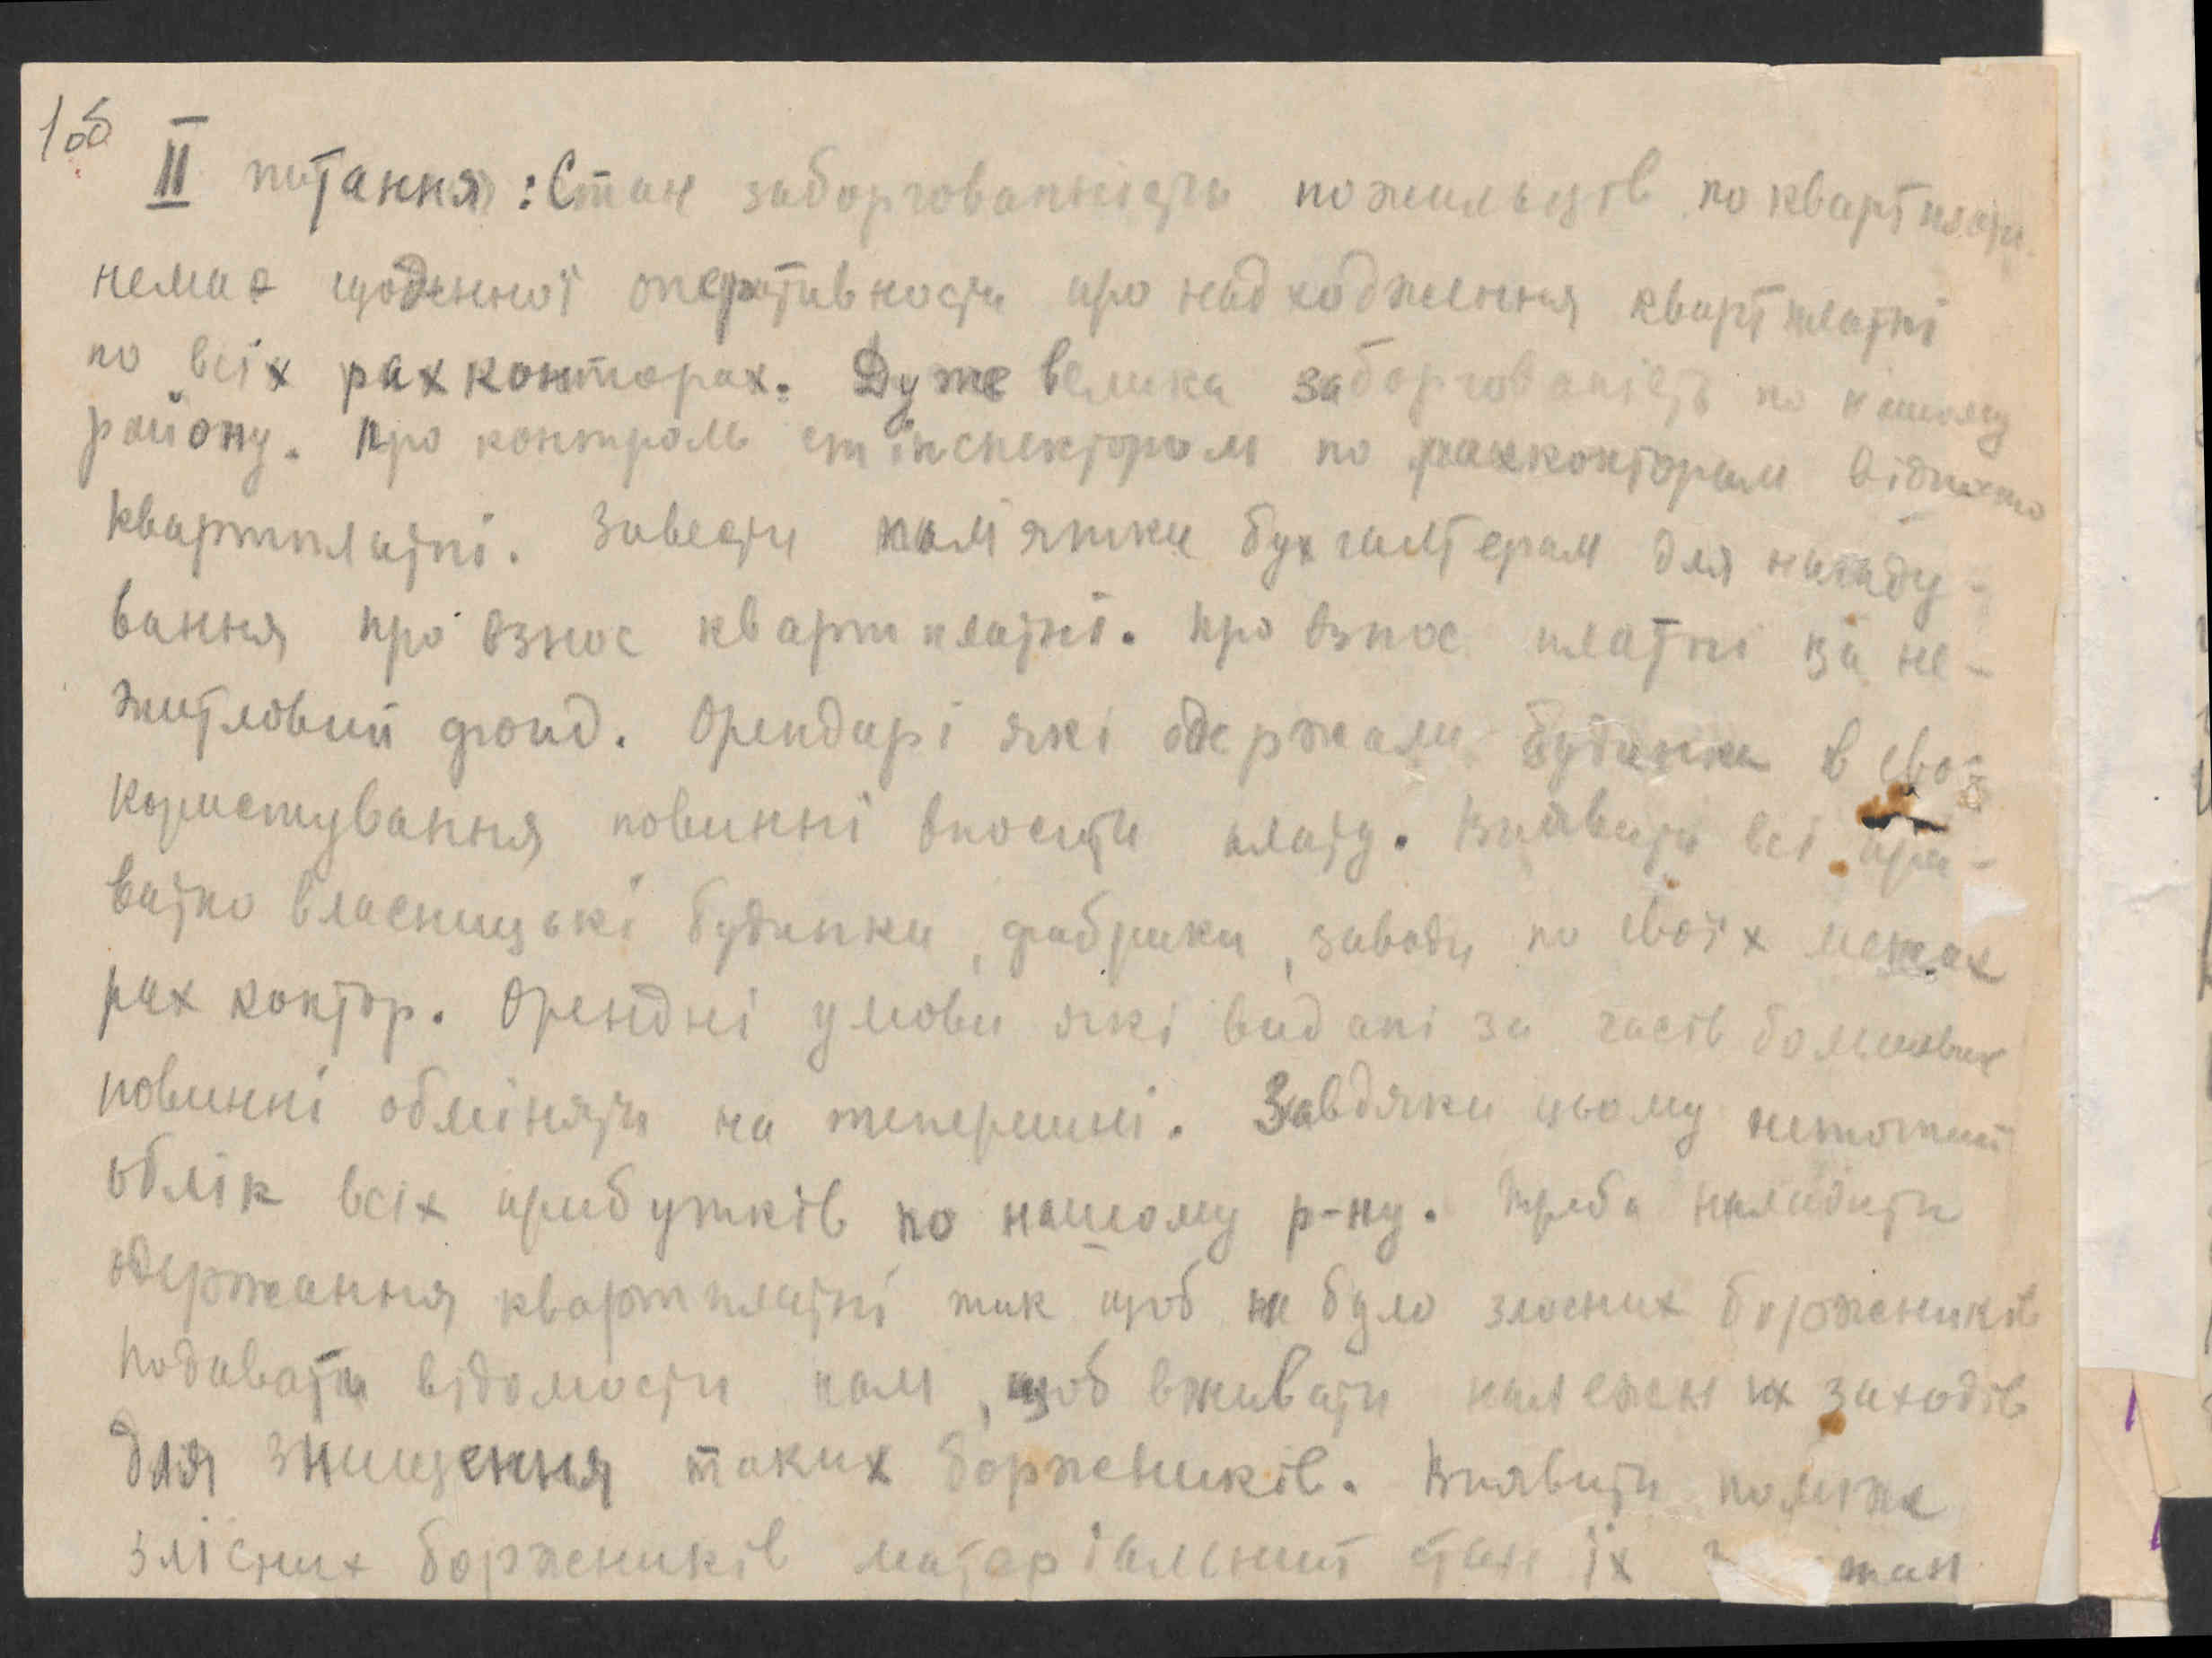 1об
II питання: Стан заборгованности пожильців по квартплати
немає щоденної оперативности про надходження квартплатні
по всіх рахконторах. Дуже велика заборгованість по нашому
району. Про контроль ст інспекторам по рахконторам
квартплатні. Завести памятки бухгалтерам для нагаду-
вання про взнос квартплатні. Про взнос платні за не-
житловий фонд. Орендарі які одержали будинки в своє
користування повинні вносити плату. Виявити всі при-
ватно власницькі будинки, фабрики, заводи по своїх межах
рах контор. Орендні умови які видані за часів
повинні обміняти на теперешні. Завдяки цьому неточний
облік всіх прибутків по нашому р-ну. Треба наладити
одержання квартплатні так щоб не було злосних боржеників
Подавати відомости нам, щоб вживати належних заходів
для знищення таких боржеників. Виявити поміже
злісних боржеників матеріальний стан їх